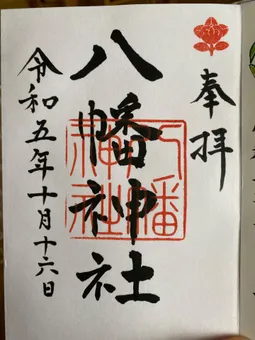 奉拝
八幡神社
令和五年十月十六日
八幡
神社